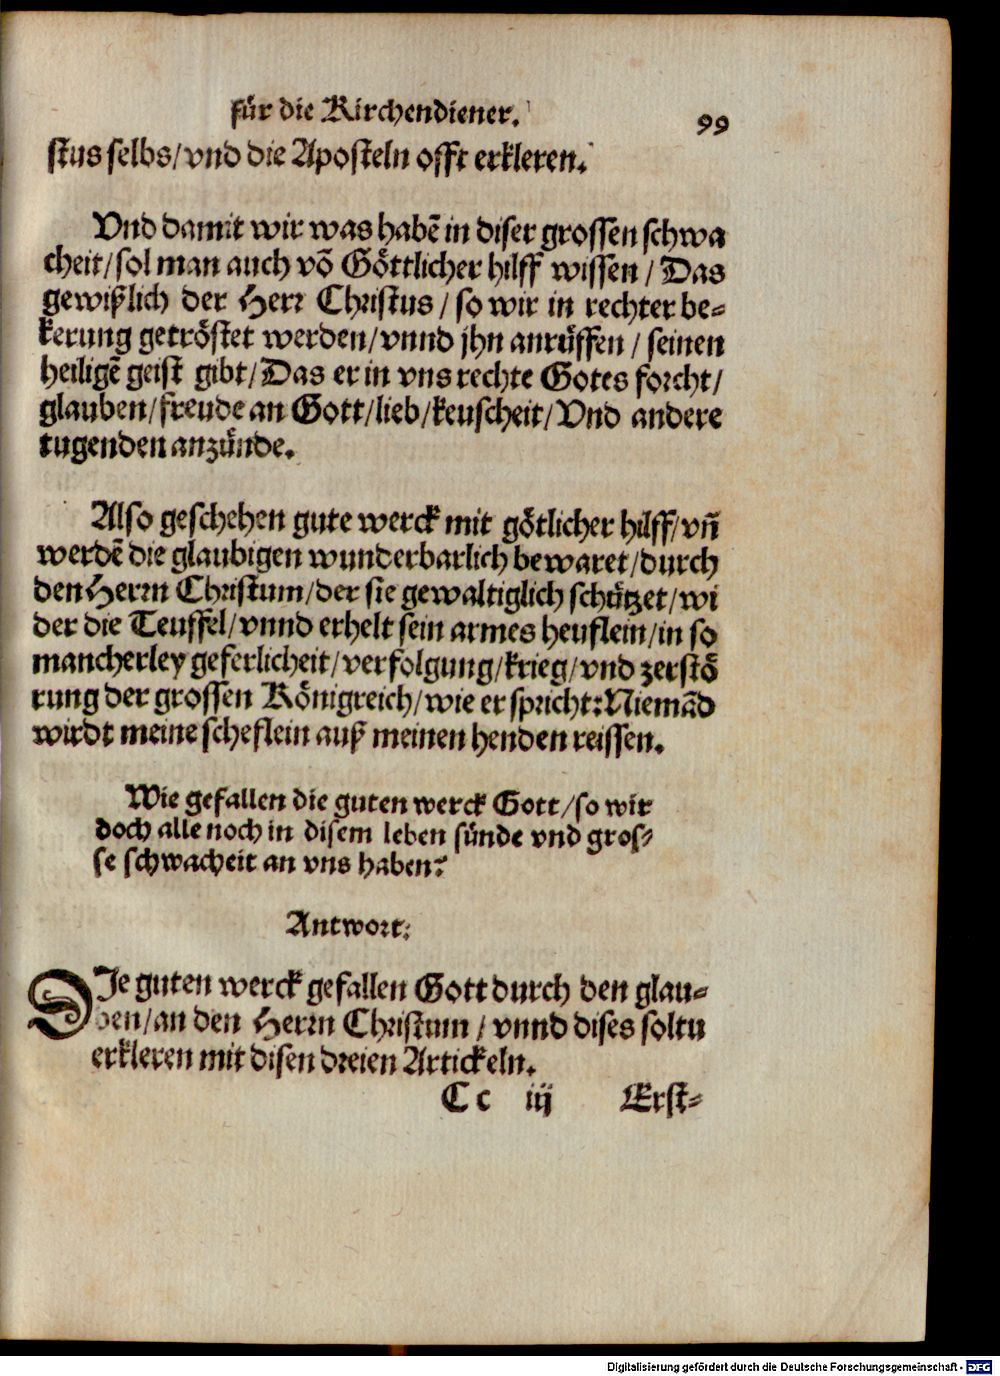 für die Kirchendiener. 99
stus selbs/vnd die Aposteln offt erkleren.
Vnd damit wir was habẽ in diser grossen schwa
cheit/sol man auch võ Göttlicher hilff wissen/Das
gewißlich der Herr Christus/so wir in rechter be-
kerung getröstet werden/vnnd jhn anrüffen/seinen
heiligẽ geist gibt/Das er in vns rechte Gotes forcht/
glauben/freude an Gott/lieb/keuscheit/Vnd andere
tugenden anzünde.
Also geschehen gute werck mit götlicher hilff/vñ
werdẽ die glaubigen wunderbarlich bewaret/durch
den Herrn Christum/der sie gewaltiglich schützet/wi
der die Teuffel/vnnd erhelt sein armes heuflein/in so
mancherley geferlicheit/verfolgung/krieg/vnd zerstö
rung der grossen Königreich/wie er spricht:Niemãd
wirdt meine scheflein auß meinen henden reissen.
Wie gefallen die guten werck Gott/so wir
doch alle noch in disem leben sünde vnd gros-
se schwacheit an vns haben?
Antwort:
DJe guten werck gefallen Gott durch den glau-
ben/an den Herrn Christum/vnnd dises soltu
erkleren mit disen dreien Artickeln.
Cc iij Erst-
Digitalisierung gefördert durch die Deutsche Forschungsgemeinschaft - DFG